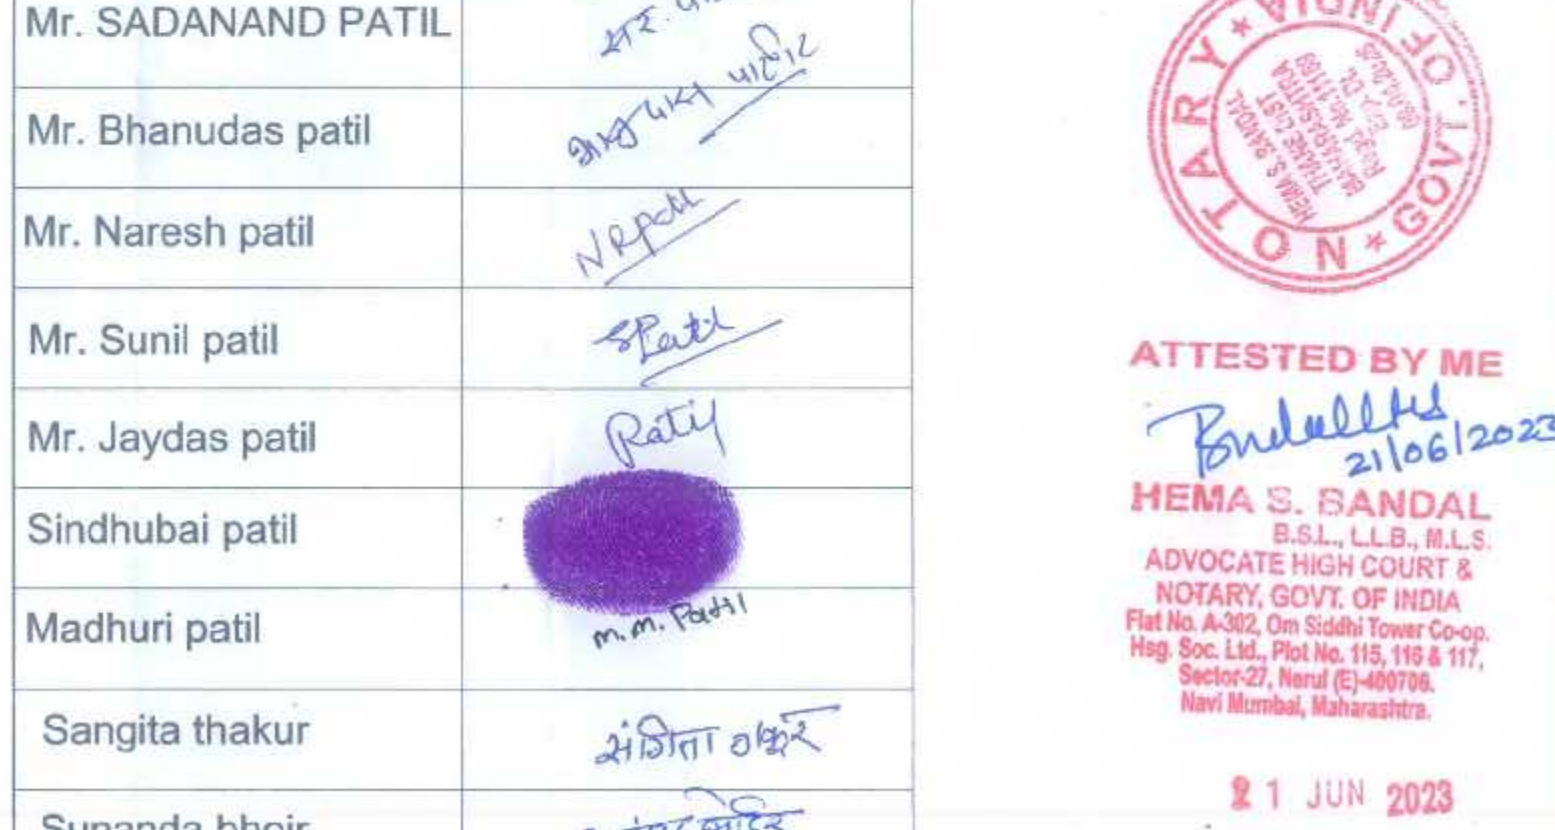 Mr. SADANAND PATIL
Mr. Bhanudas patil
पाटील
Mr. Naresh patil
NRPatil
Mr. Sunil patil
SPatil
Mr. Jaydas patil
Patil
Sindhubai patil
Madhuri patil
m.m. Patil
Sangita thakur
संगिता ठाकूर
Sunanda bhoir
NOTARY * GOVT. OF INDIA *
HEMA S. BANDAL
THANE DIST
MAHARASHTRA
Regd. No. 11163
ATTESTED BY ME
21/06/2023
HEMA S. BANDAL
B.S.L., L.L.B., M.L.S.
ADVOCATE HIGH COURT &
NOTARY, GOVT. OF INDIA
Flat No. A-302, Om Siddhi Tower Co-op.
Hsg. Soc. Ltd., Plot No. 115, 116 & 117,
Sector-27, Nerul (E)-400706.
Navi Mumbai, Maharashtra.
21 JUN 2023